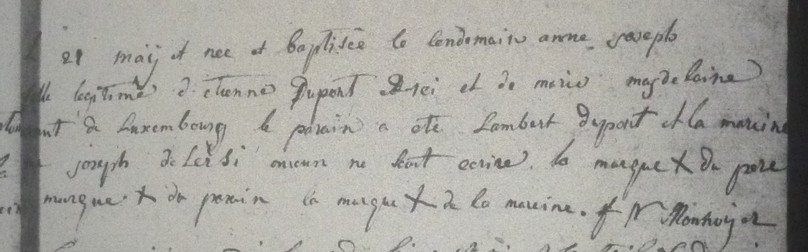 21 maij et nee et baptisée le lendemain anne joseph
fille legitime d'etienne Dupont et de marie magdelaine
de Luxembourg le parain a ete Lambert dupont et la mareine
joseph de aucun ne scait ecrire. la marque + du pere
marque + du parain la marque + de la mareine.